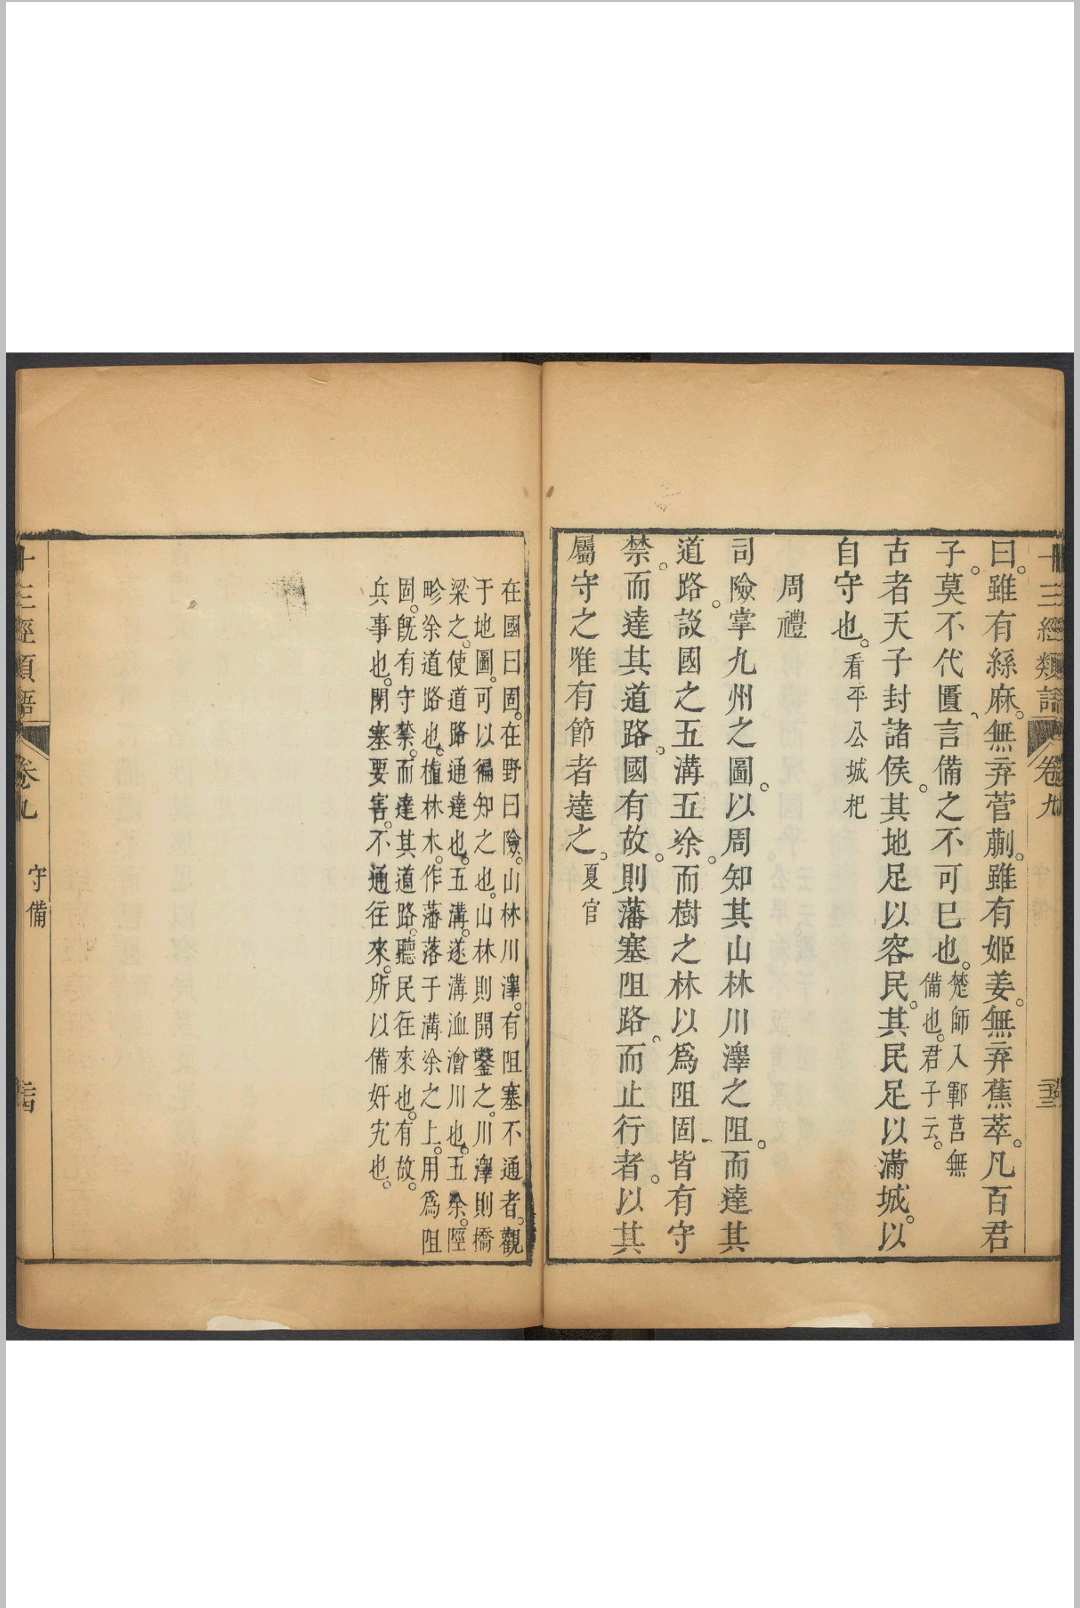 十三經類語
卷九
三十三
曰雖有絲麻。無弃菅蒯。雖有姬姜。無弃蕉萃。凡百君
子。莫不代匱、言備之不可已也。楚師入鄆莒無
備也。君子云。
古者天子封諸侯。其地足以容民。其民足以滿城。以
自守也。看平公城杞
周禮
司險。掌九州之圖。以周知其山林川澤之阻。而達其
道路。設國之五溝五涂。而樹之林以爲阻固、皆有守
禁。而達其道路。國有故。則藩塞阻路。而止行者。以其
屬守之唯有節者達之。夏官
在國曰固。在野曰險。山林川澤。有阻塞不通者。觀
于地圖。可以徧知之也。山林則開鑿之。川澤則橋
梁之。使道路通達也。五溝。遂溝洫澮川也。五涂。陘
畛涂道路也。植林木。作藩落于溝涂之上。用爲阻
固。旣有守禁。而達其道路。聽民往來也。有故。
兵事也。閉塞要害。不通往來。所以備奸宄也。
十三經類語
卷九
守備
三十四